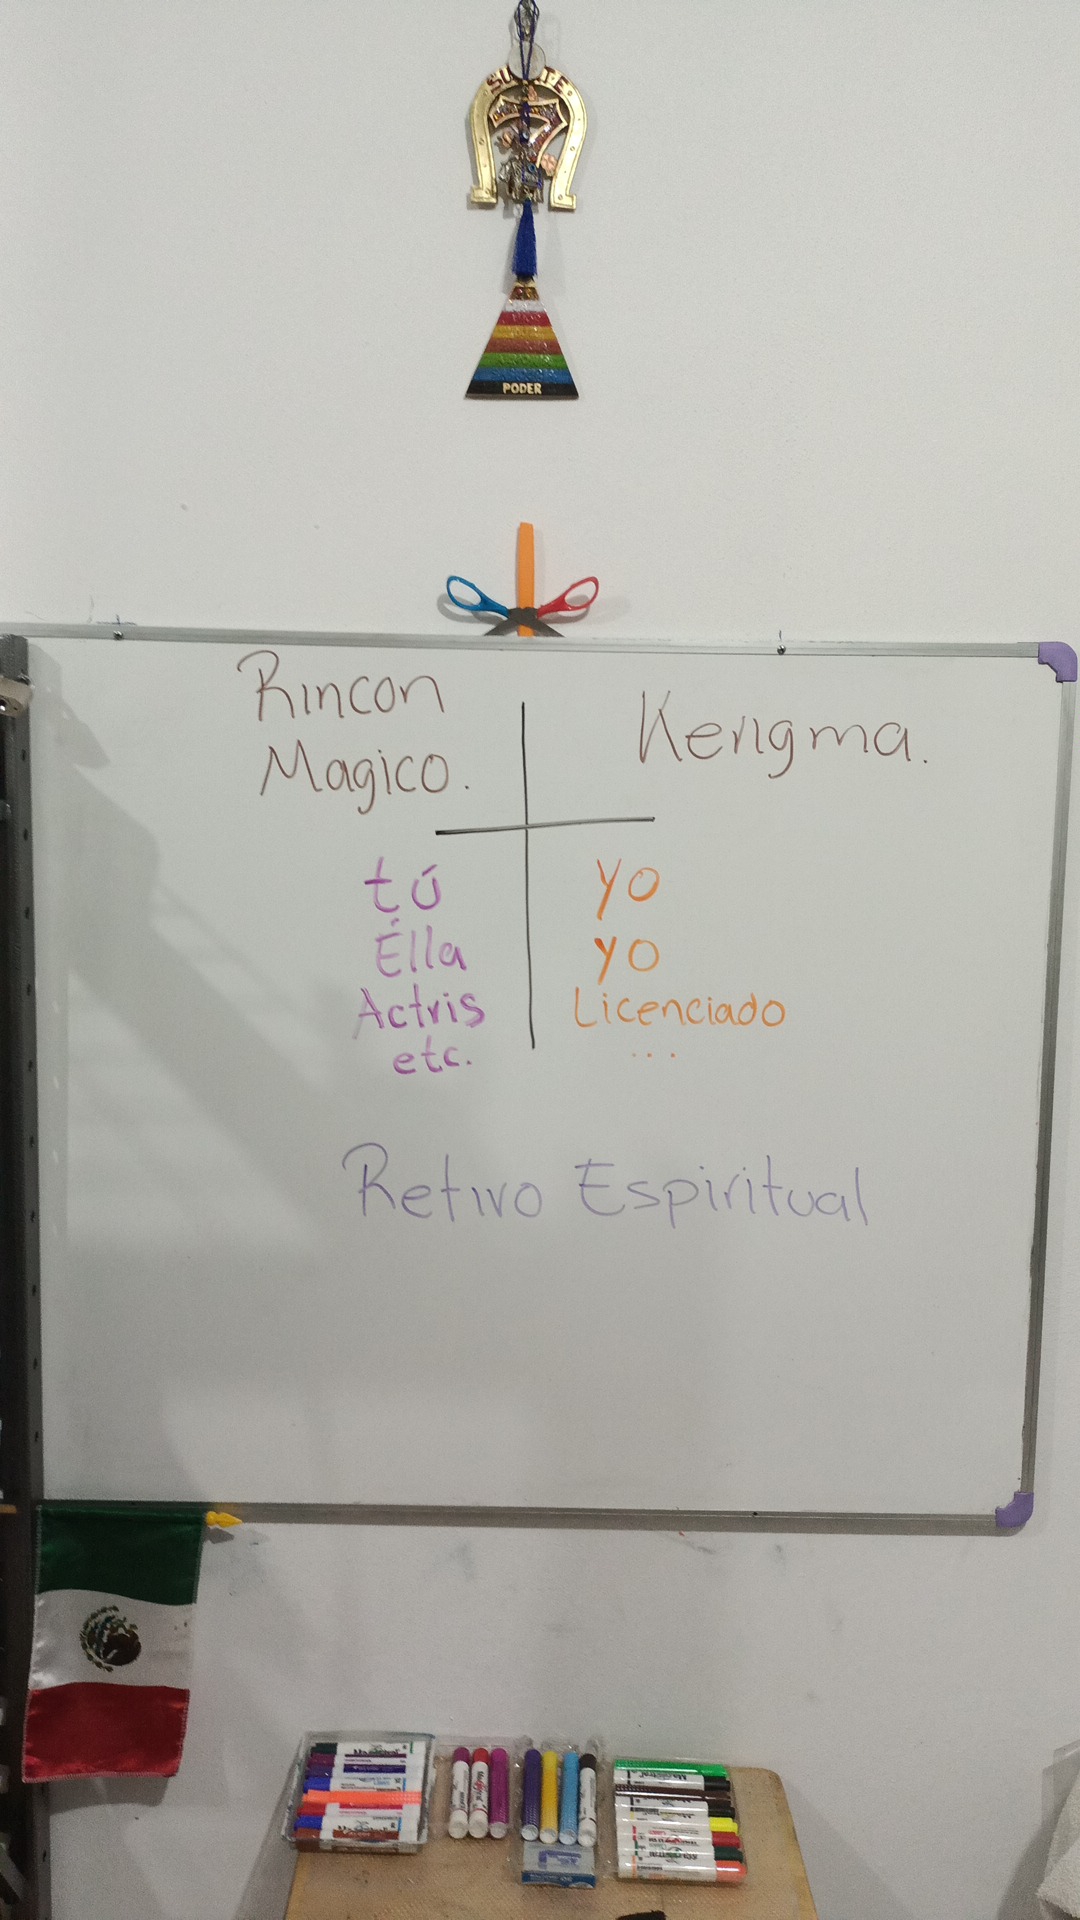 SUERTE
7
PODER
Rincon
Magico.
Kerigma.
tú
Ella
Actris
etc.
yo
yo
Licenciado
...
Retiro Espiritual
Magistral